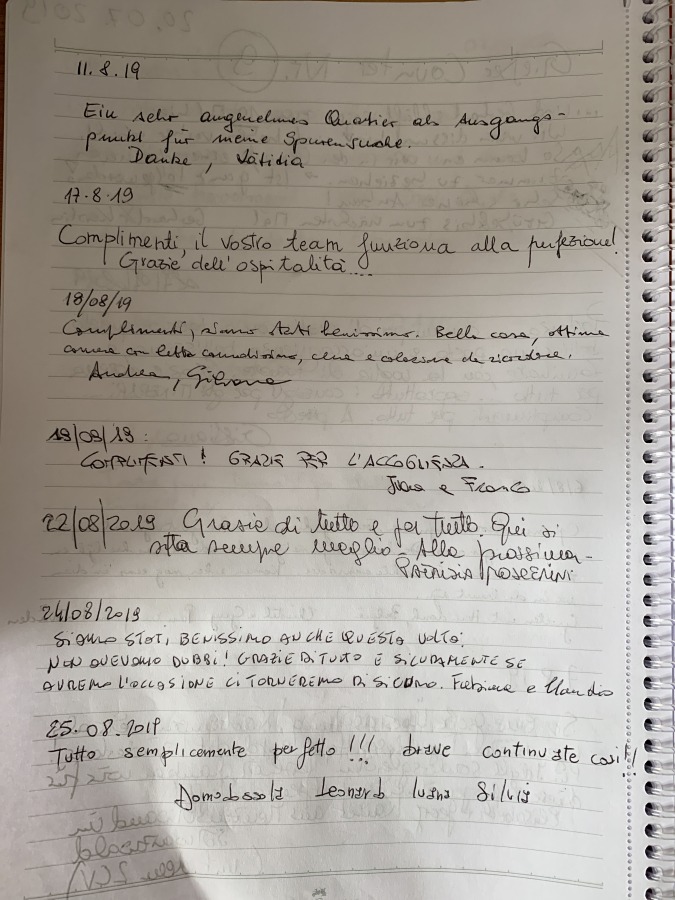 11.8.19
Ein sehr angenehmes Quartier als Ausgangs-
punkt für meine Spurensuche.
Danke, Vätidia
17.8.19
Complimenti, il vostro team funziona alla perfezione!
Grazie dell'ospitalità...
18/08/19
Complimenti, siamo stati benissimo. Bella casa, ottima
camera con letto comodissimo, cena e colazione da ricordare.
Andrea, Silvana
19/09/19:
COMPLIMENTI! GRAZIE PER L'ACCOGLIENZA.
e Franco
22/08/2019 Grazie di tutto e per tutto. Qui si
sta sempre meglio - Alla prossima -
PATRIZIA
24/08/2019
SIAMO STATI BENISSIMO ANCHE QUESTA VOLTA!
NON AVEVAMO DUBBI! GRAZIE DI TUTTO E SICURAMENTE SE
AVREMO L'OCCASIONE CI TORNEREMO DI SICURO. Fabiana e Claudio
25.08.2019
Tutto semplicemente perfetto!!! brave continuate così!!
Domodossola Leonardo Luana Silvia